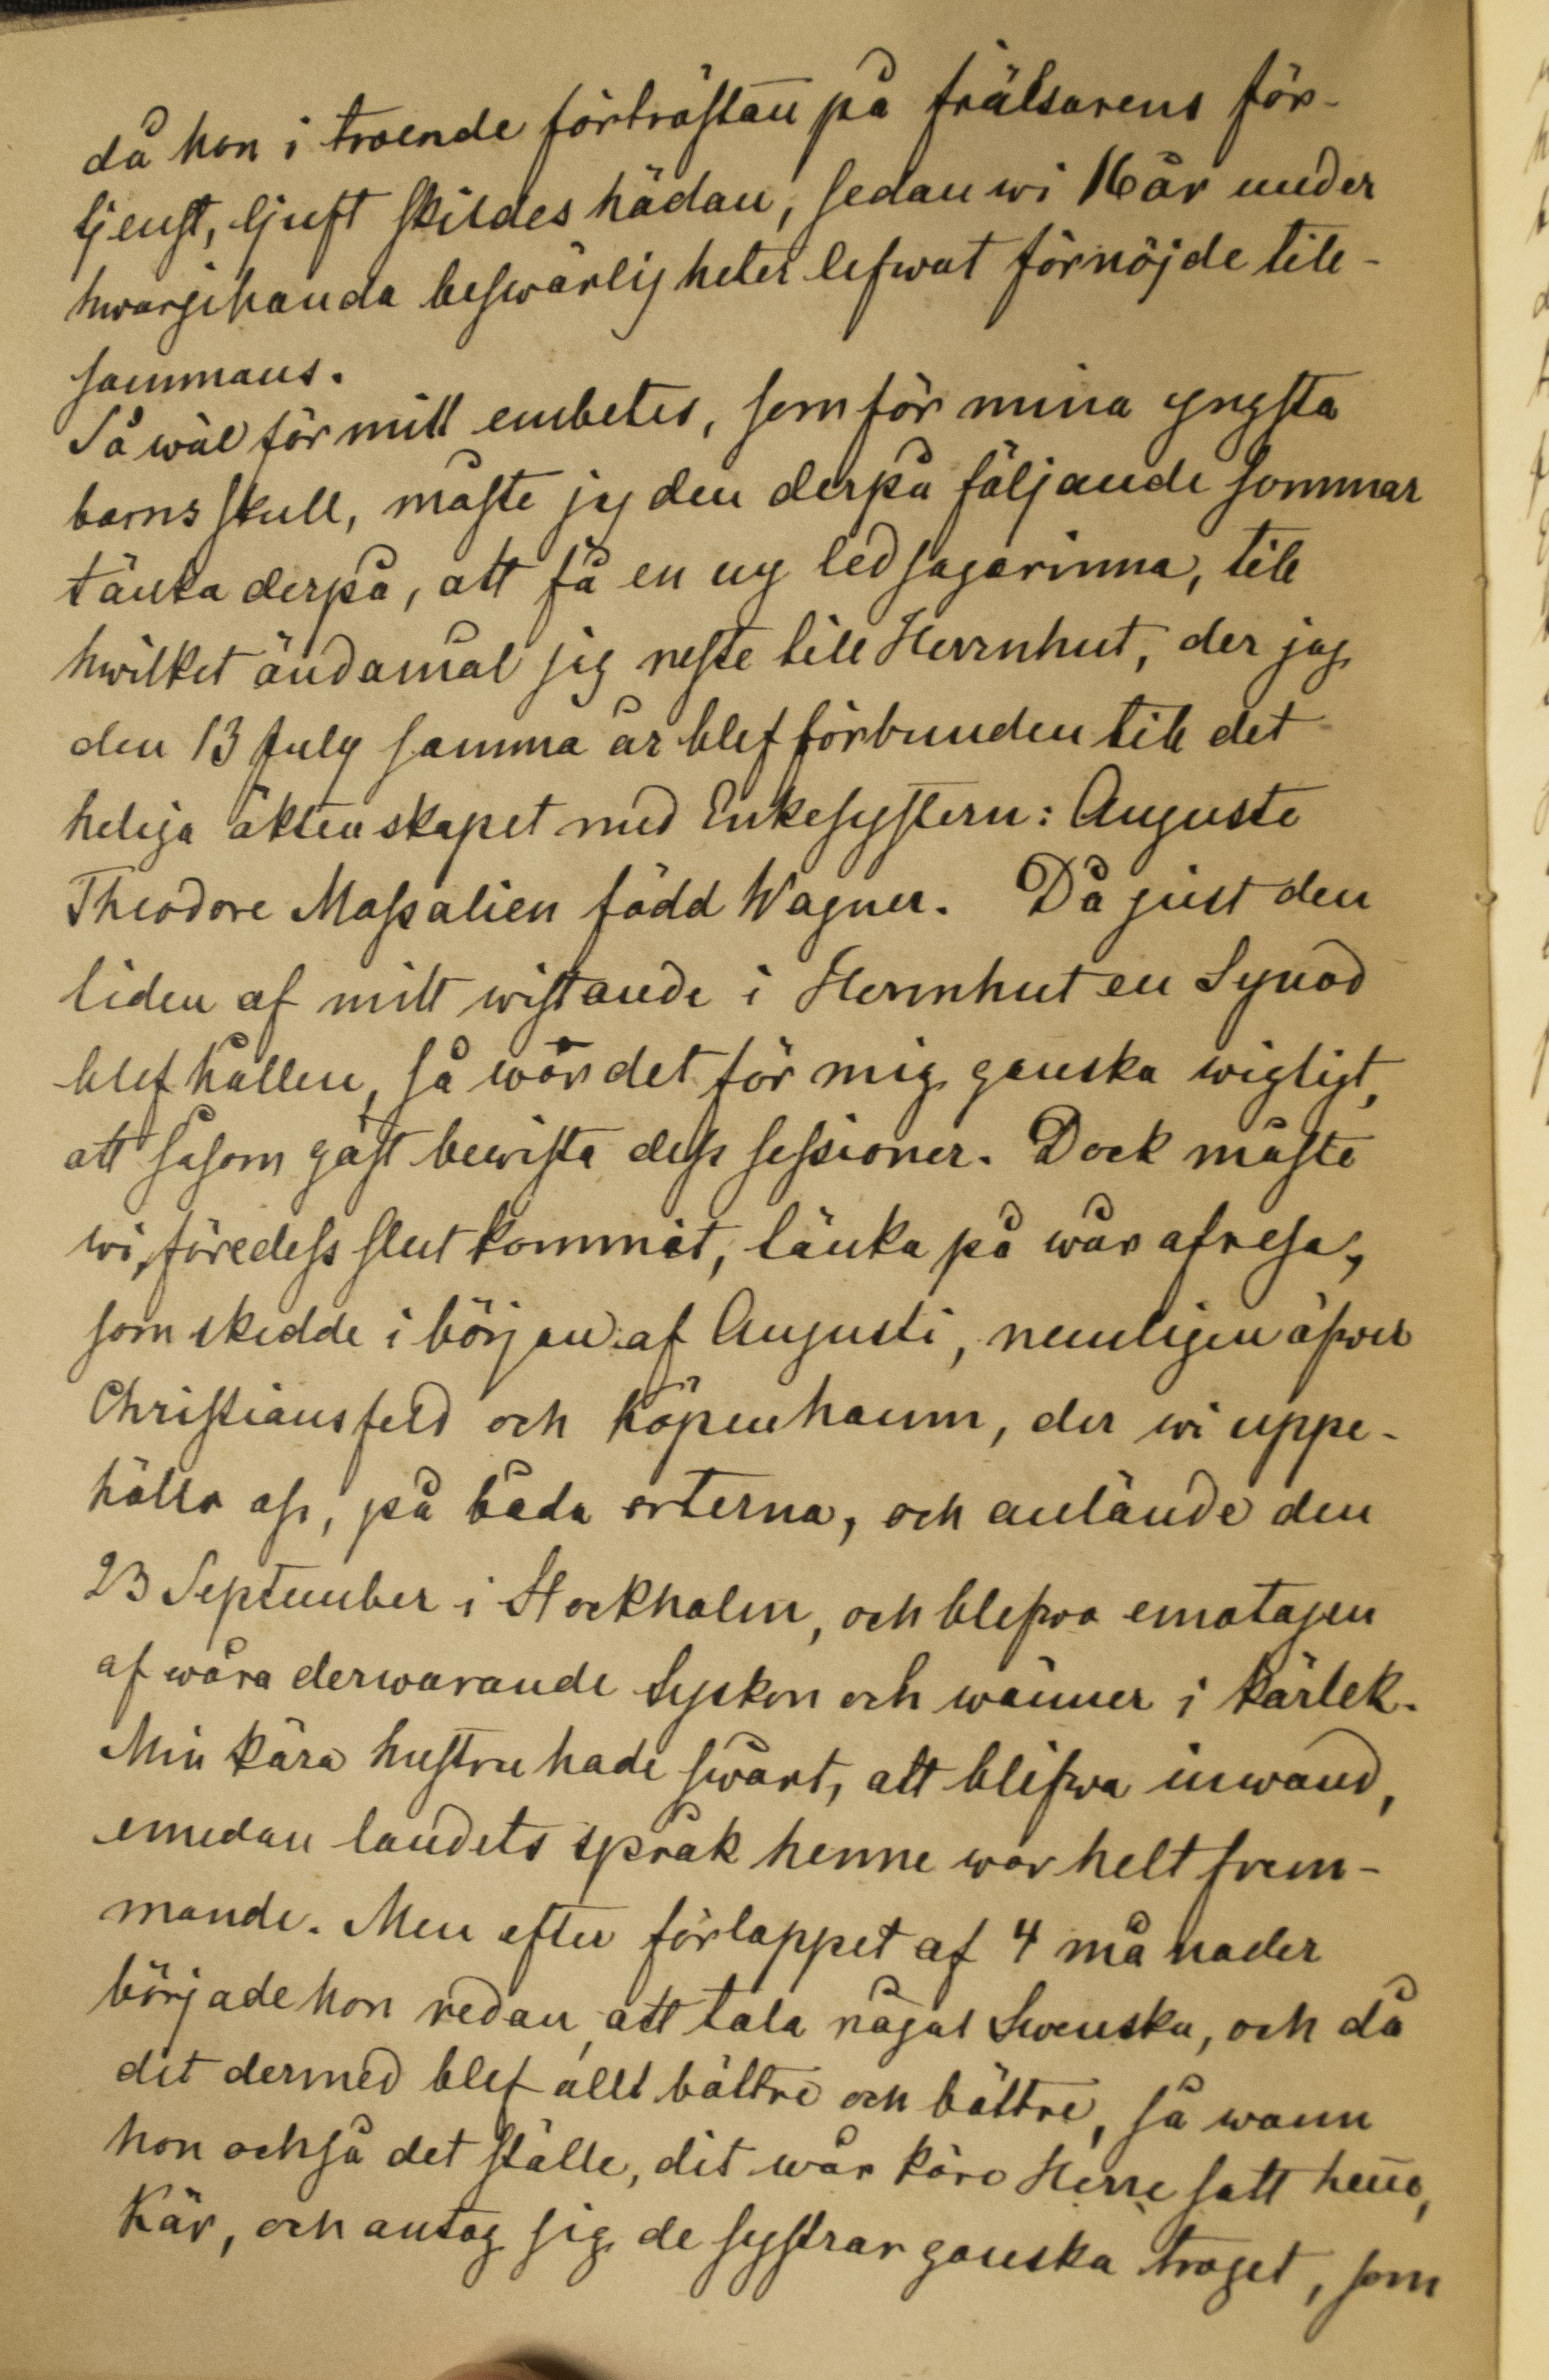 då hon i troende förtröstan̄ på frälsarens för-
tjenst, ljuft skildes hädan, sedan wi 16 år under
hwarjehanda beswärligheter lefwat förnöjde till-
sammans.
Så wäl för mitt embetes, som för mina yngsta
barns skull, måste jag den derpå följande sommar
tänka derpå, att få en ny ledsagarinna, till
hwilket ändamål jag reste till Herrnhut, der jag
den 13 July samma år blef förbunden till det
heliga äktenskapet med Enkesystern: Auguste
Theodore Massalien född Wagner. Då just den
tiden af mitt wistande i Herrnhut en Synod
blef hållen, så war det för mig ganska wigtigt,
att såsom gäst bewista dess sessioner. Dock måste
wi, före dess slut kommit, tänka på wår afresa,
som skedde i början af Augusti, nemligen öfwer
Christiansfeld och Köpenhamn, der wi uppe-
höllo oss, på båda orterna, och anlände den
23 September i Stockholm, och blefwo emottagen
af wåra derwarande Syskon och wänner i kärlek.
Min kära hustru hade swårt, att blifwa inwand,
emedan landets språk henne war helt frem-
mande. Men efter förloppet af 4 månader
började hon redan, att tala något Swenska, och då
det dermed blef allt bättre och bättre, så wann
hon också det ställe, dit wår käre Herre satt hen̄e,
Kär, och antog sig de systrar ganska troget, som